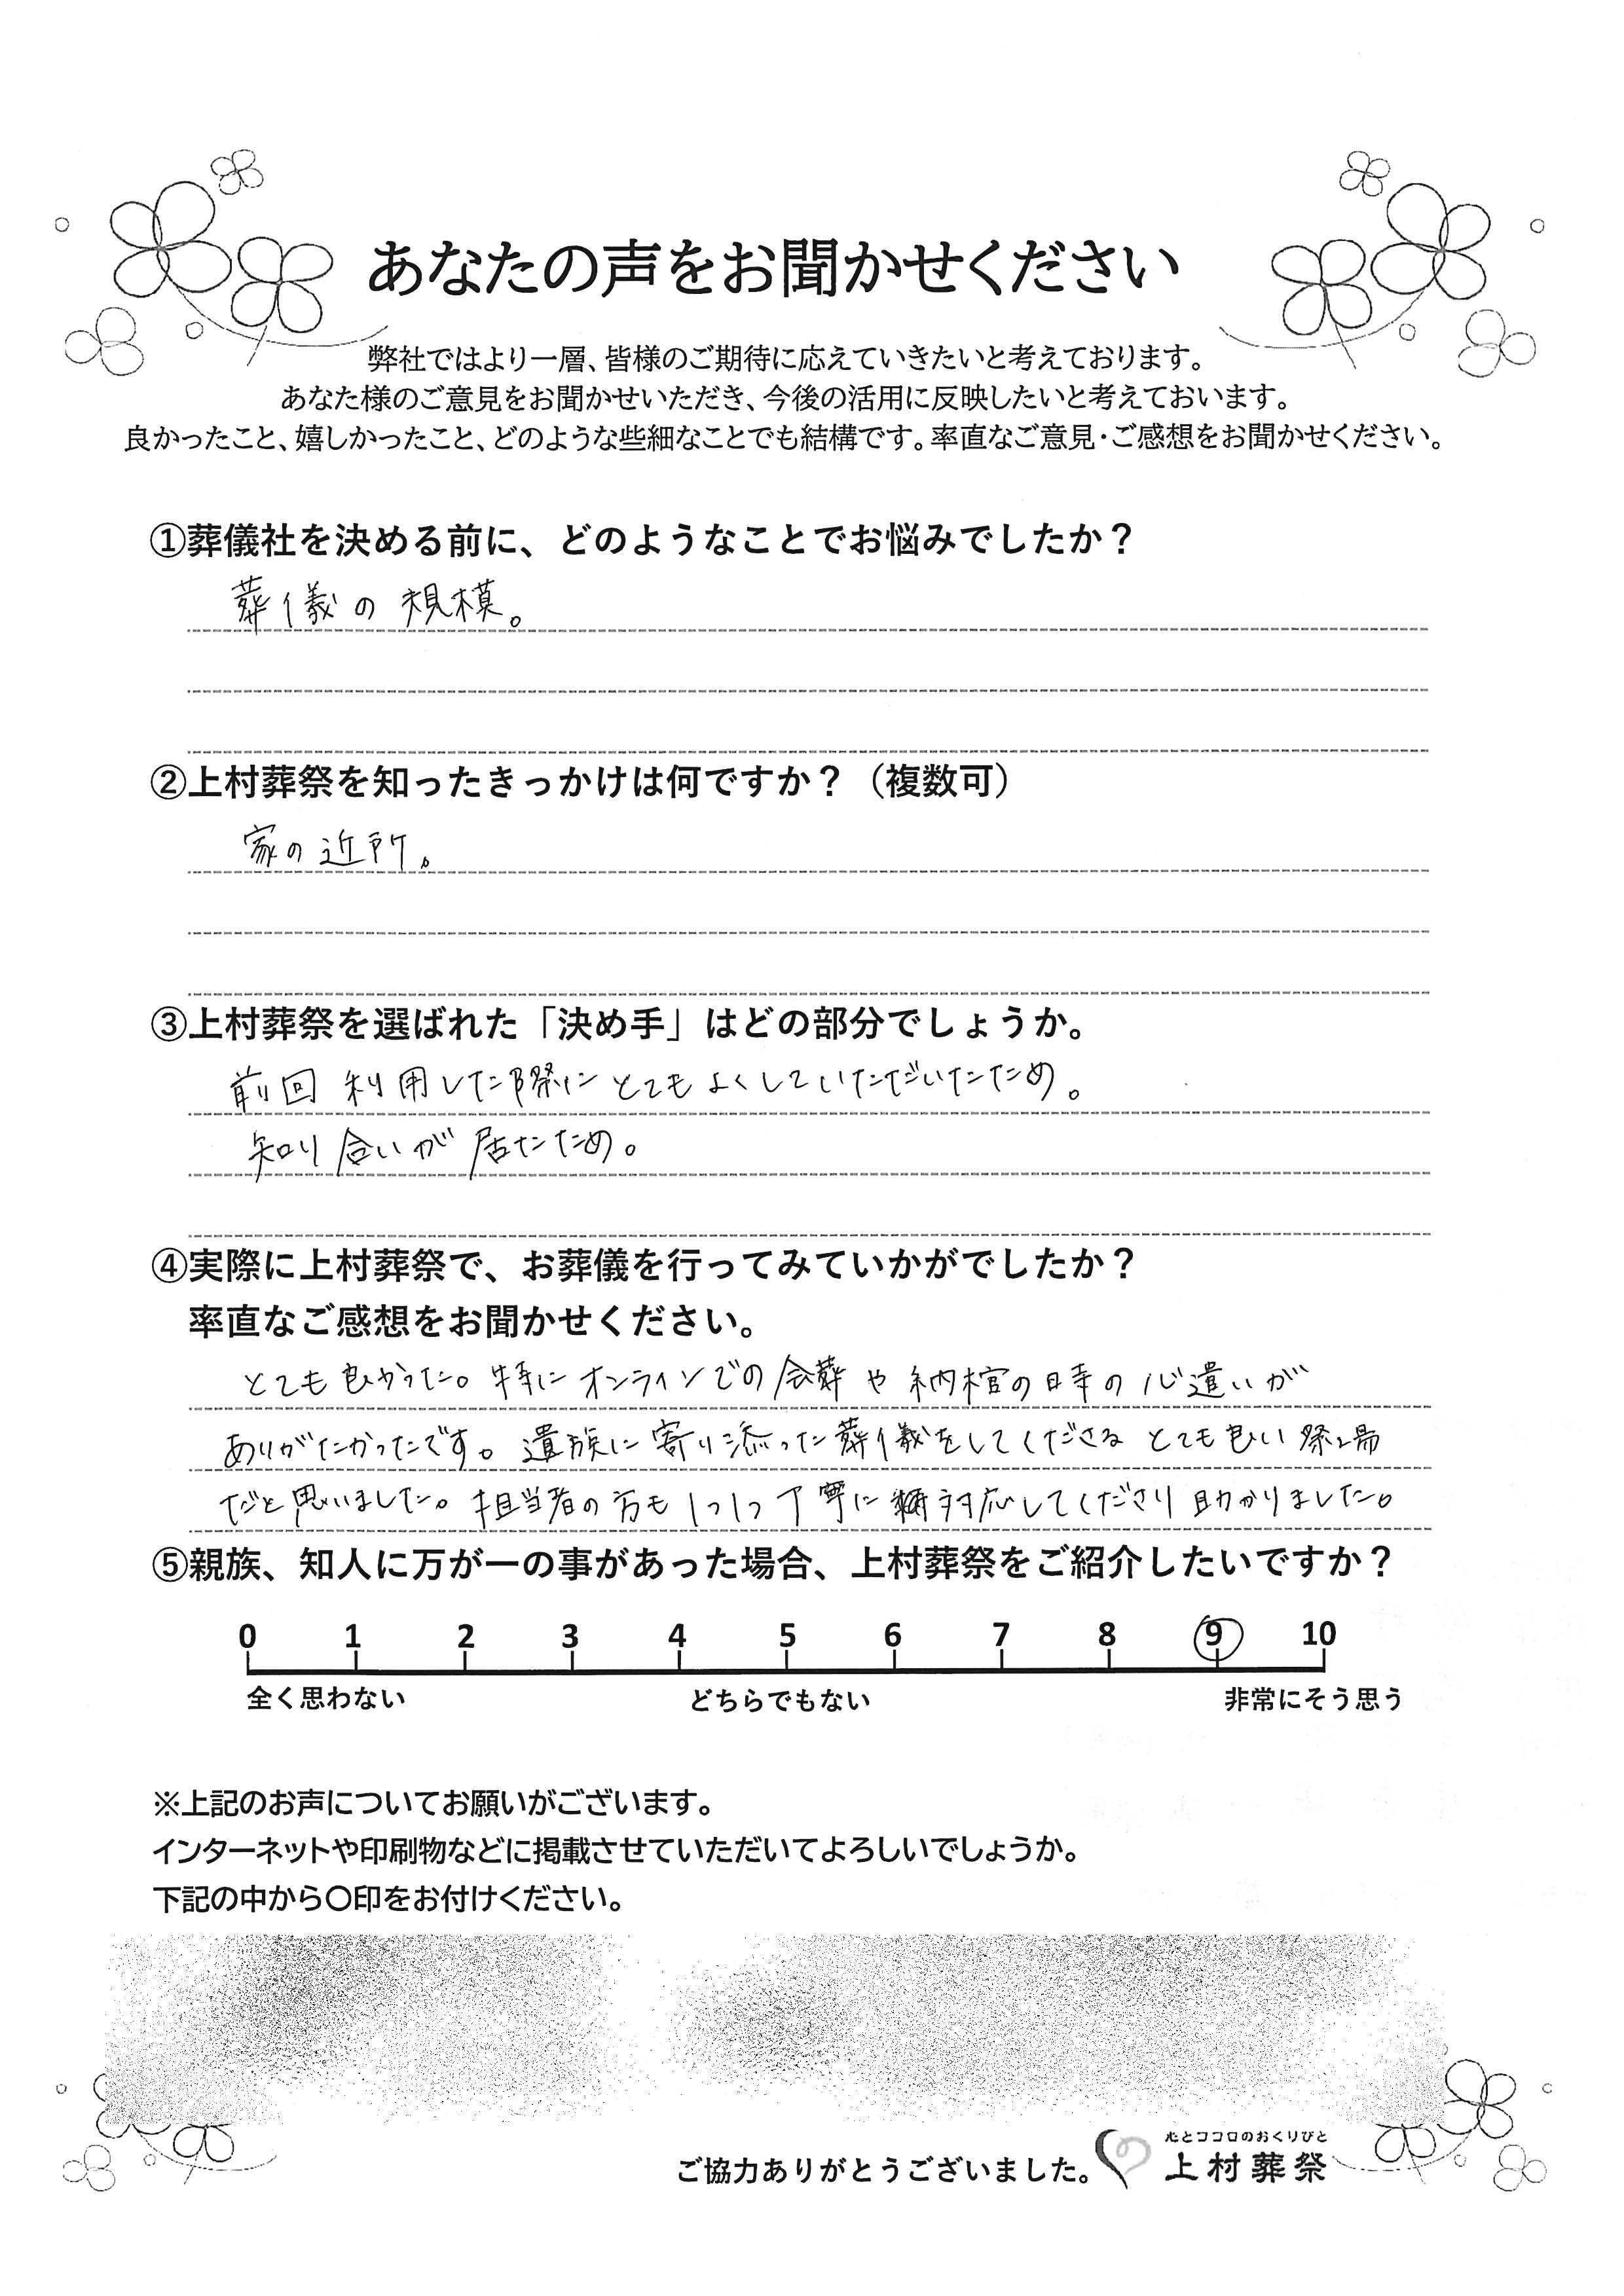 あなたの声をお聞かせください
弊社ではより一層、皆様のご期待に応えていきたいと考えております。
あなた様のご意見をお聞かせいただき、今後の活用に反映したいと考えておいます。
良かったこと、嬉しかったこと、どのような些細なことでも結構です。率直なご意見・ご感想をお聞かせください。
①葬儀社を決める前に、どのようなことでお悩みでしたか？
葬儀の規模。
②上村葬祭を知ったきっかけは何ですか？（複数可）
家の近所。
③上村葬祭を選ばれた「決め手」はどの部分でしょうか。
前回利用した際にとてもよくしていただいたため。
知り合いが居たため。
④実際に上村葬祭で、お葬儀を行ってみていかがでしたか？
率直なご感想をお聞かせください。
とても良かった。特にオンラインでの会葬や納棺の時の心遣いが
ありがたかったです。遺族に寄り添った葬儀をしてくださるとても良い祭場
だと思いました。担当者の方も1つ1つ丁寧に対応してくださり助かりました。
⑤親族、知人に万が一の事があった場合、上村葬祭をご紹介したいですか？
0 1 2 3 4 5 6 7 8 9 10
全く思わない どちらでもない 非常にそう思う
※上記のお声についてお願いがございます。
インターネットや印刷物などに掲載させていただいてよろしいでしょうか。
下記の中から〇印をお付けください。
心とココロのおくりびと
ご協力ありがとうございました。 上村葬祭